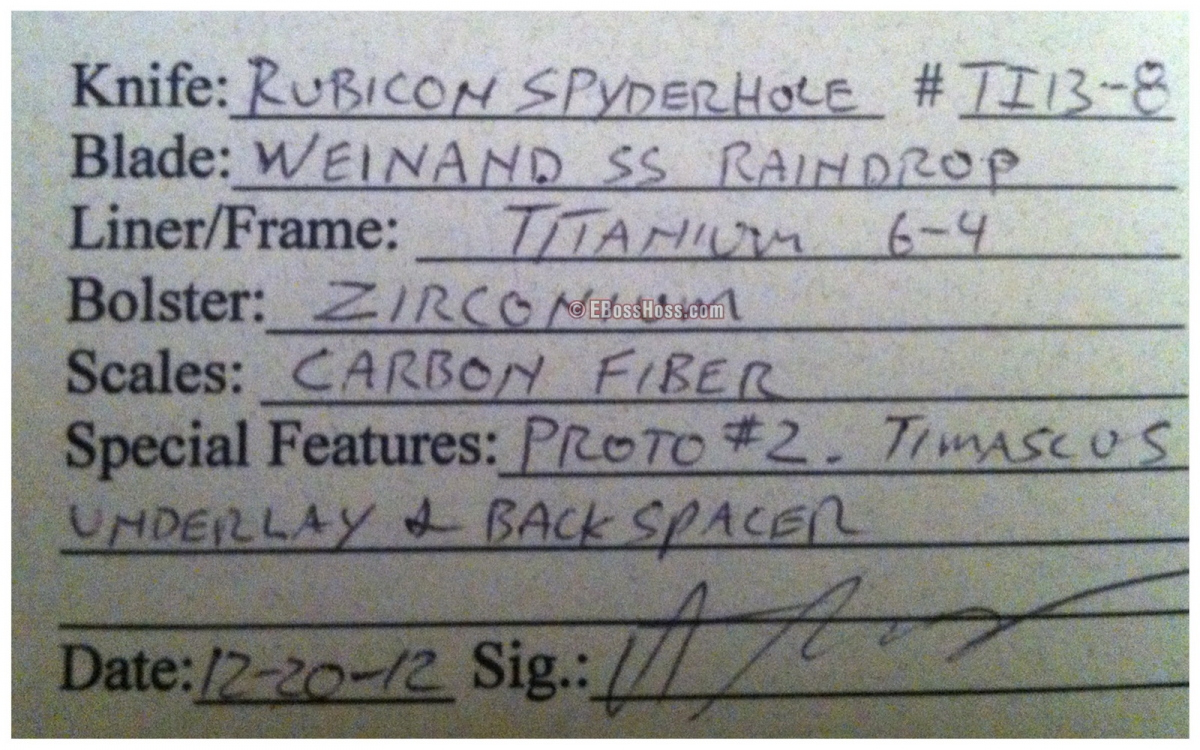 Knife: RUBICON SPYDERHOLE # TI13-8
Blade: WEINAND SS RAINDROP
Liner/Frame: TITANIUM 6-4
Bolster: ZIRCONIUM
© EBossHoss.com
Scales: CARBON FIBER
Special Features: PROTO #2. TIMASCUS
UNDERLAY & BACKSPACER
Date: 12-20-12 Sig.: